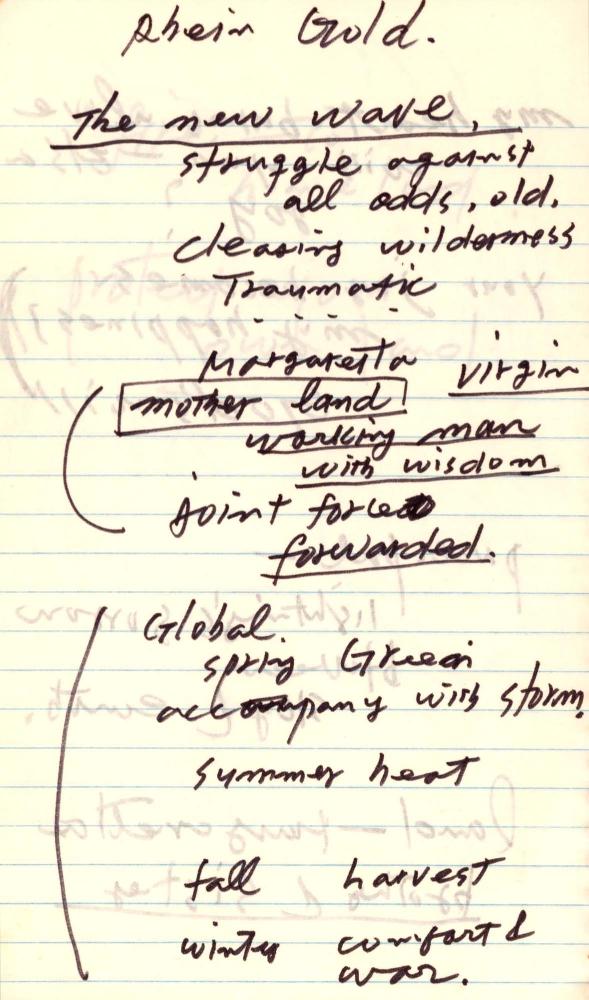 Rhein Gold.
The new wave,
struggle against
all odds, old.
clearing wilderness
Traumatic
Margaretta virgin
mother land
working man
with wisdom
joint force
forwarded.
Global.
spring Green
accompany with storm.
summer heat
fall harvest
winter comfort &
war.